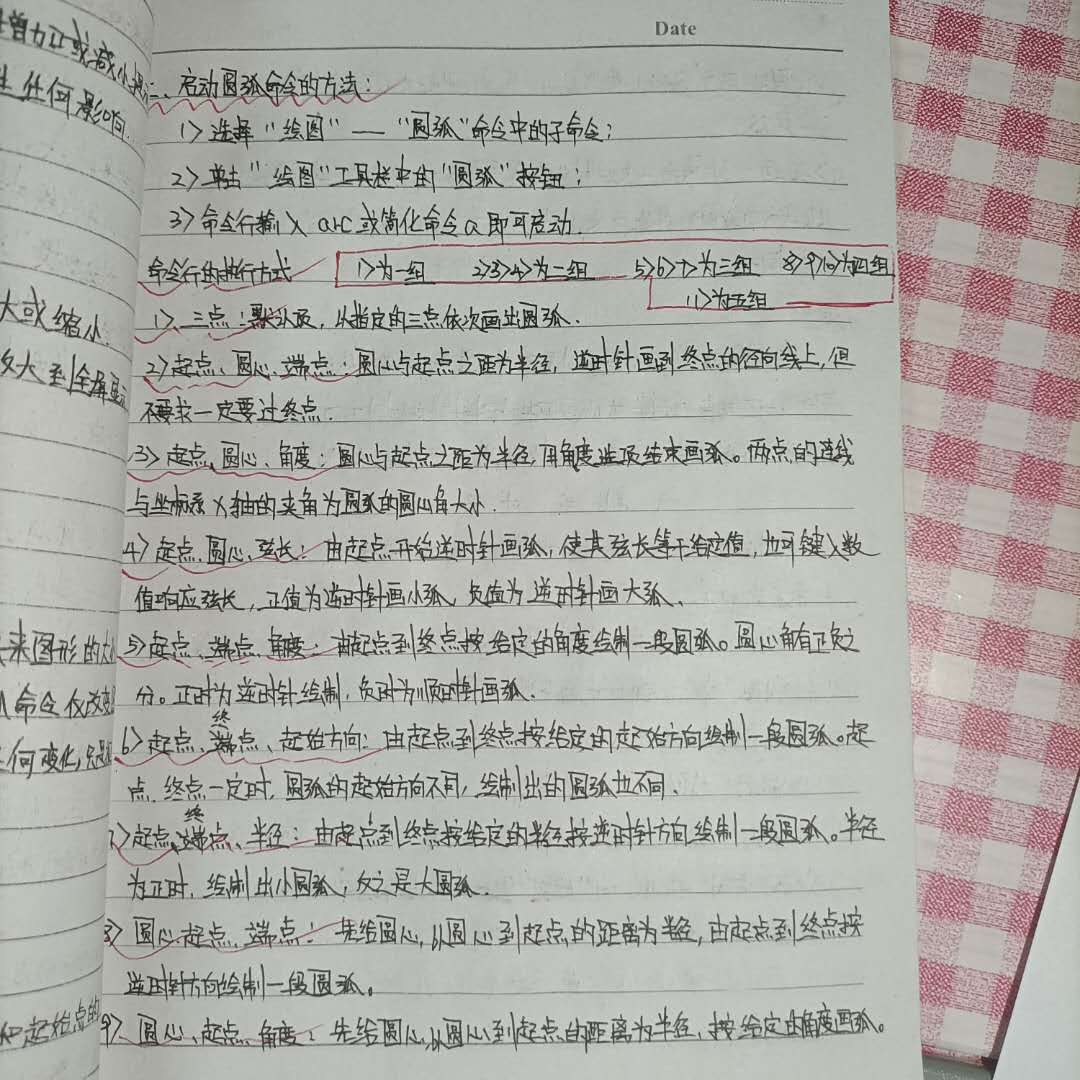 Date
增加或减小
生任何影响.
大或缩小.
放大到全屏显示
来图形的大小
命令仅改变
任何变化,
和起始点的
二、启动圆弧命令的方法:
1>选择“绘图”—“圆弧”命令中的子命令;
2>单击“绘图”工具栏中的“圆弧”按钮;
3>命令行输入arc或简化命令a即可启动.
命令行的执行方式 1>为一组 2>3>4>为二组 5>6>7>为三组 8>9>10>为四组
11>为五组
1>、三点:默认项,从指定的三点依次画出圆弧.
2>起点、圆心、端点:圆心与起点之距为半径,逆时针画到终点的径向线上,但
不要求一定要过终点.
3>起点、圆心、角度:圆心与起点之距为半径,用角度选项结束画弧。两点的连线
与坐标系X轴的夹角为圆弧的圆心角大小.
4>起点、圆心、弦长:由起点开始逆时针画弧,使其弦长等于给定值,也可键入数
值响应弦长,正值为逆时针画小弧、负值为逆时针画大弧、
5>起点、端点、角度:由起点到终点按给定的角度绘制一段圆弧。圆心角有正负之
分。正时为逆时针绘制,负时为顺时针画弧、
终
6>起点、端点、起始方向:由起点到终点按给定的起始方向绘制一段圆弧。起
点、终点一定时,圆弧的起始方向不同,绘制出的圆弧也不同、
终
7>起点、端点、半径:由起点到终点按给定的半径按逆时针方向绘制一段圆弧。半径
为正时,绘制出小圆弧,反之是大圆弧.
8>圆心、起点、端点:先给圆心,以圆心到起点的距离为半径,由起点到终点按
逆时针方向绘制一段圆弧。
9>、圆心、起点、角度:先给圆心,以圆心到起点的距离为半径、按给定由角度画弧。